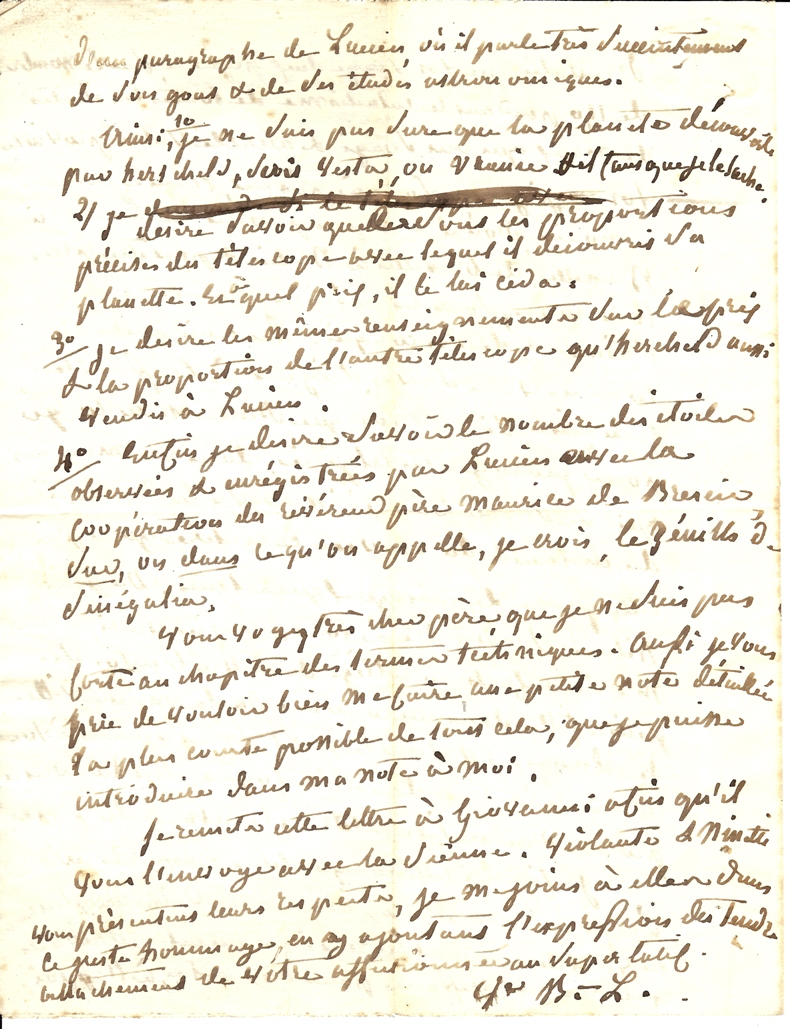 paragraphe de Lucien, où il parle très succintement
de ses gous & de ses études astronomiques.
Ainsi, 1º je ne suis pas sure que la planète découverte
par herscheld, soit Vesta, ou Uranie. Il faus que je le sache.
2) je
desire savoir quelles sons les proportions
précises du télescope avec lequel il découvris sa
planette. Et à quel prix, il le lui céda.
3º je desire les mêmes renseignements sur le prix
& la proportion de l'autre télescope qu'herscheld aussi
vendis à Lucien.
4º Enfin je desire savoir le nombre des étoiles
observées & enrégistrées par Lucien avec la
coopération du révérend père Maurice de Brescia,
sur, ou dans ce qu'on appelle, je crois, le Zénith de
Sinégalia.
Vous voyez très cher père que je ne suis pas
forte au chapitre des termes techniques. Aussi je vous
prie de vouloir bien me faire une petite note détaillée
la plus courte possible de tous cela, que je puisse
introduire dans ma note à moi.
Je remets cette lettre à Giovanni afin qu'il
vous l'envoye avec la sienne. Violante & Ninette
vous présentens leurs respects, je me joins à elles dans
ce juste hommage, en y ajoutans l'expression du tendre
attachemens de votre affectionnée au superlatif.
B-L.